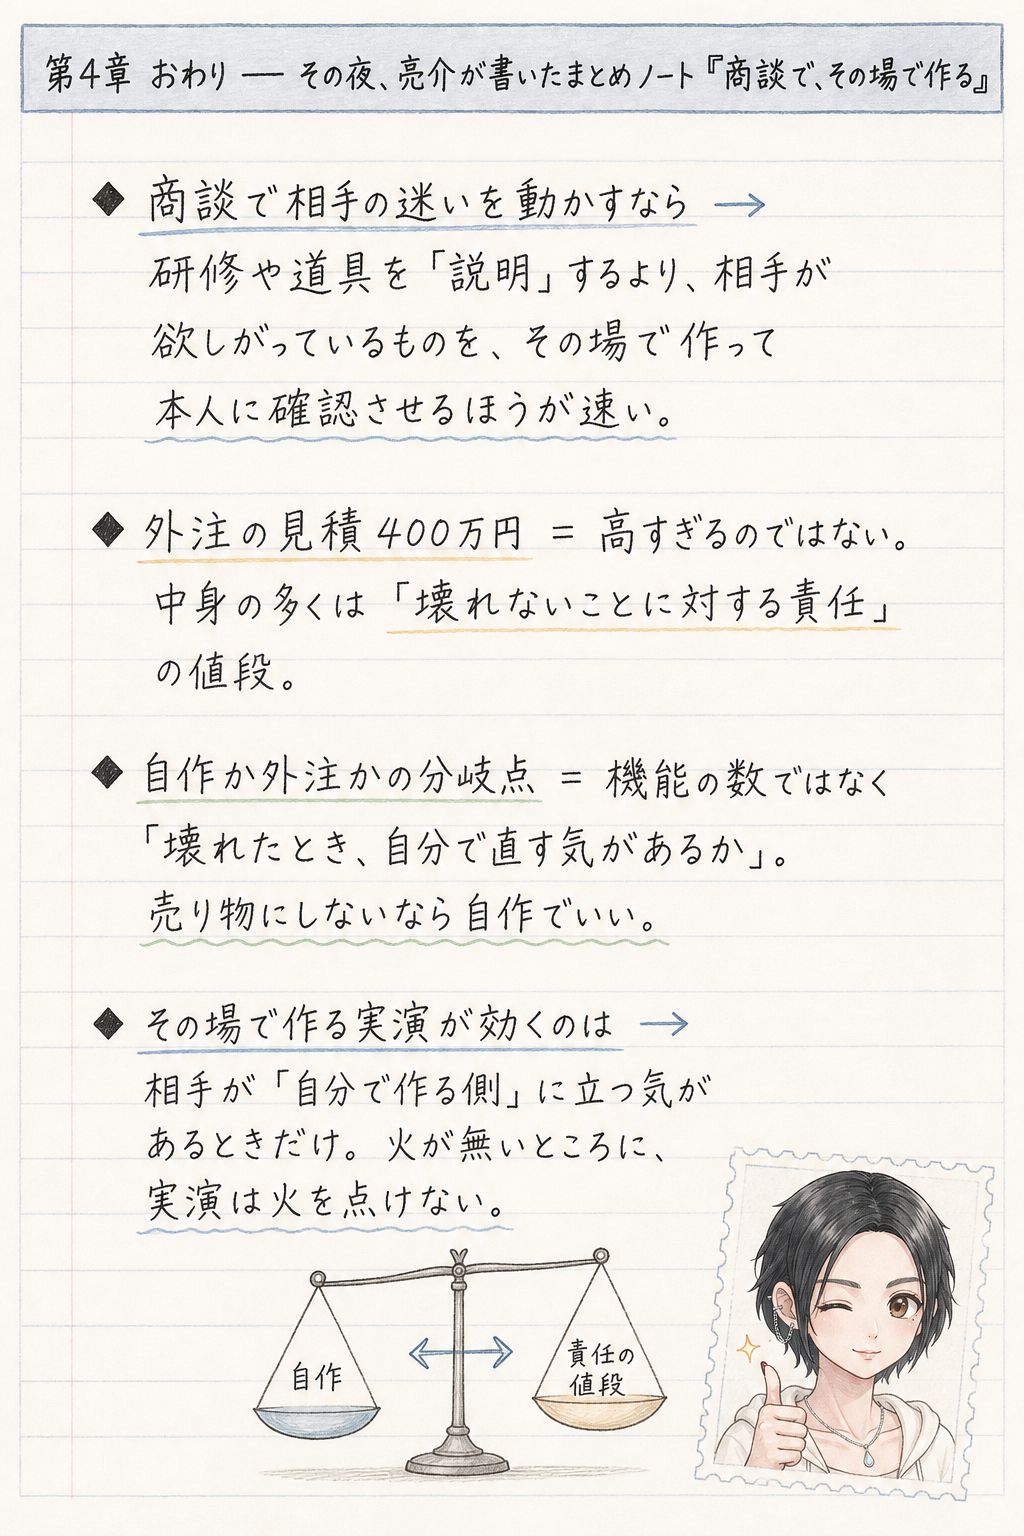 第4章 おわり — その夜、亮介が書いたまとめノート『商談で、その場で作る』
◆ 商談で相手の迷いを動かすなら →
研修や道具を「説明」するより、相手が
欲しがっているものを、その場で作って
本人に確認させるほうが速い。
◆ 外注の見積400万円 = 高すぎるのではない。
中身の多くは「壊れないことに対する責任」
の値段。
◆ 自作か外注かの分岐点 = 機能の数ではなく
「壊れたとき、自分で直す気があるか」。
売り物にしないなら自作でいい。
◆ その場で作る実演が効くのは →
相手が「自分で作る側」に立つ気が
あるときだけ。火が無いところに、
実演は火を点けない。
自作
責任の
値段